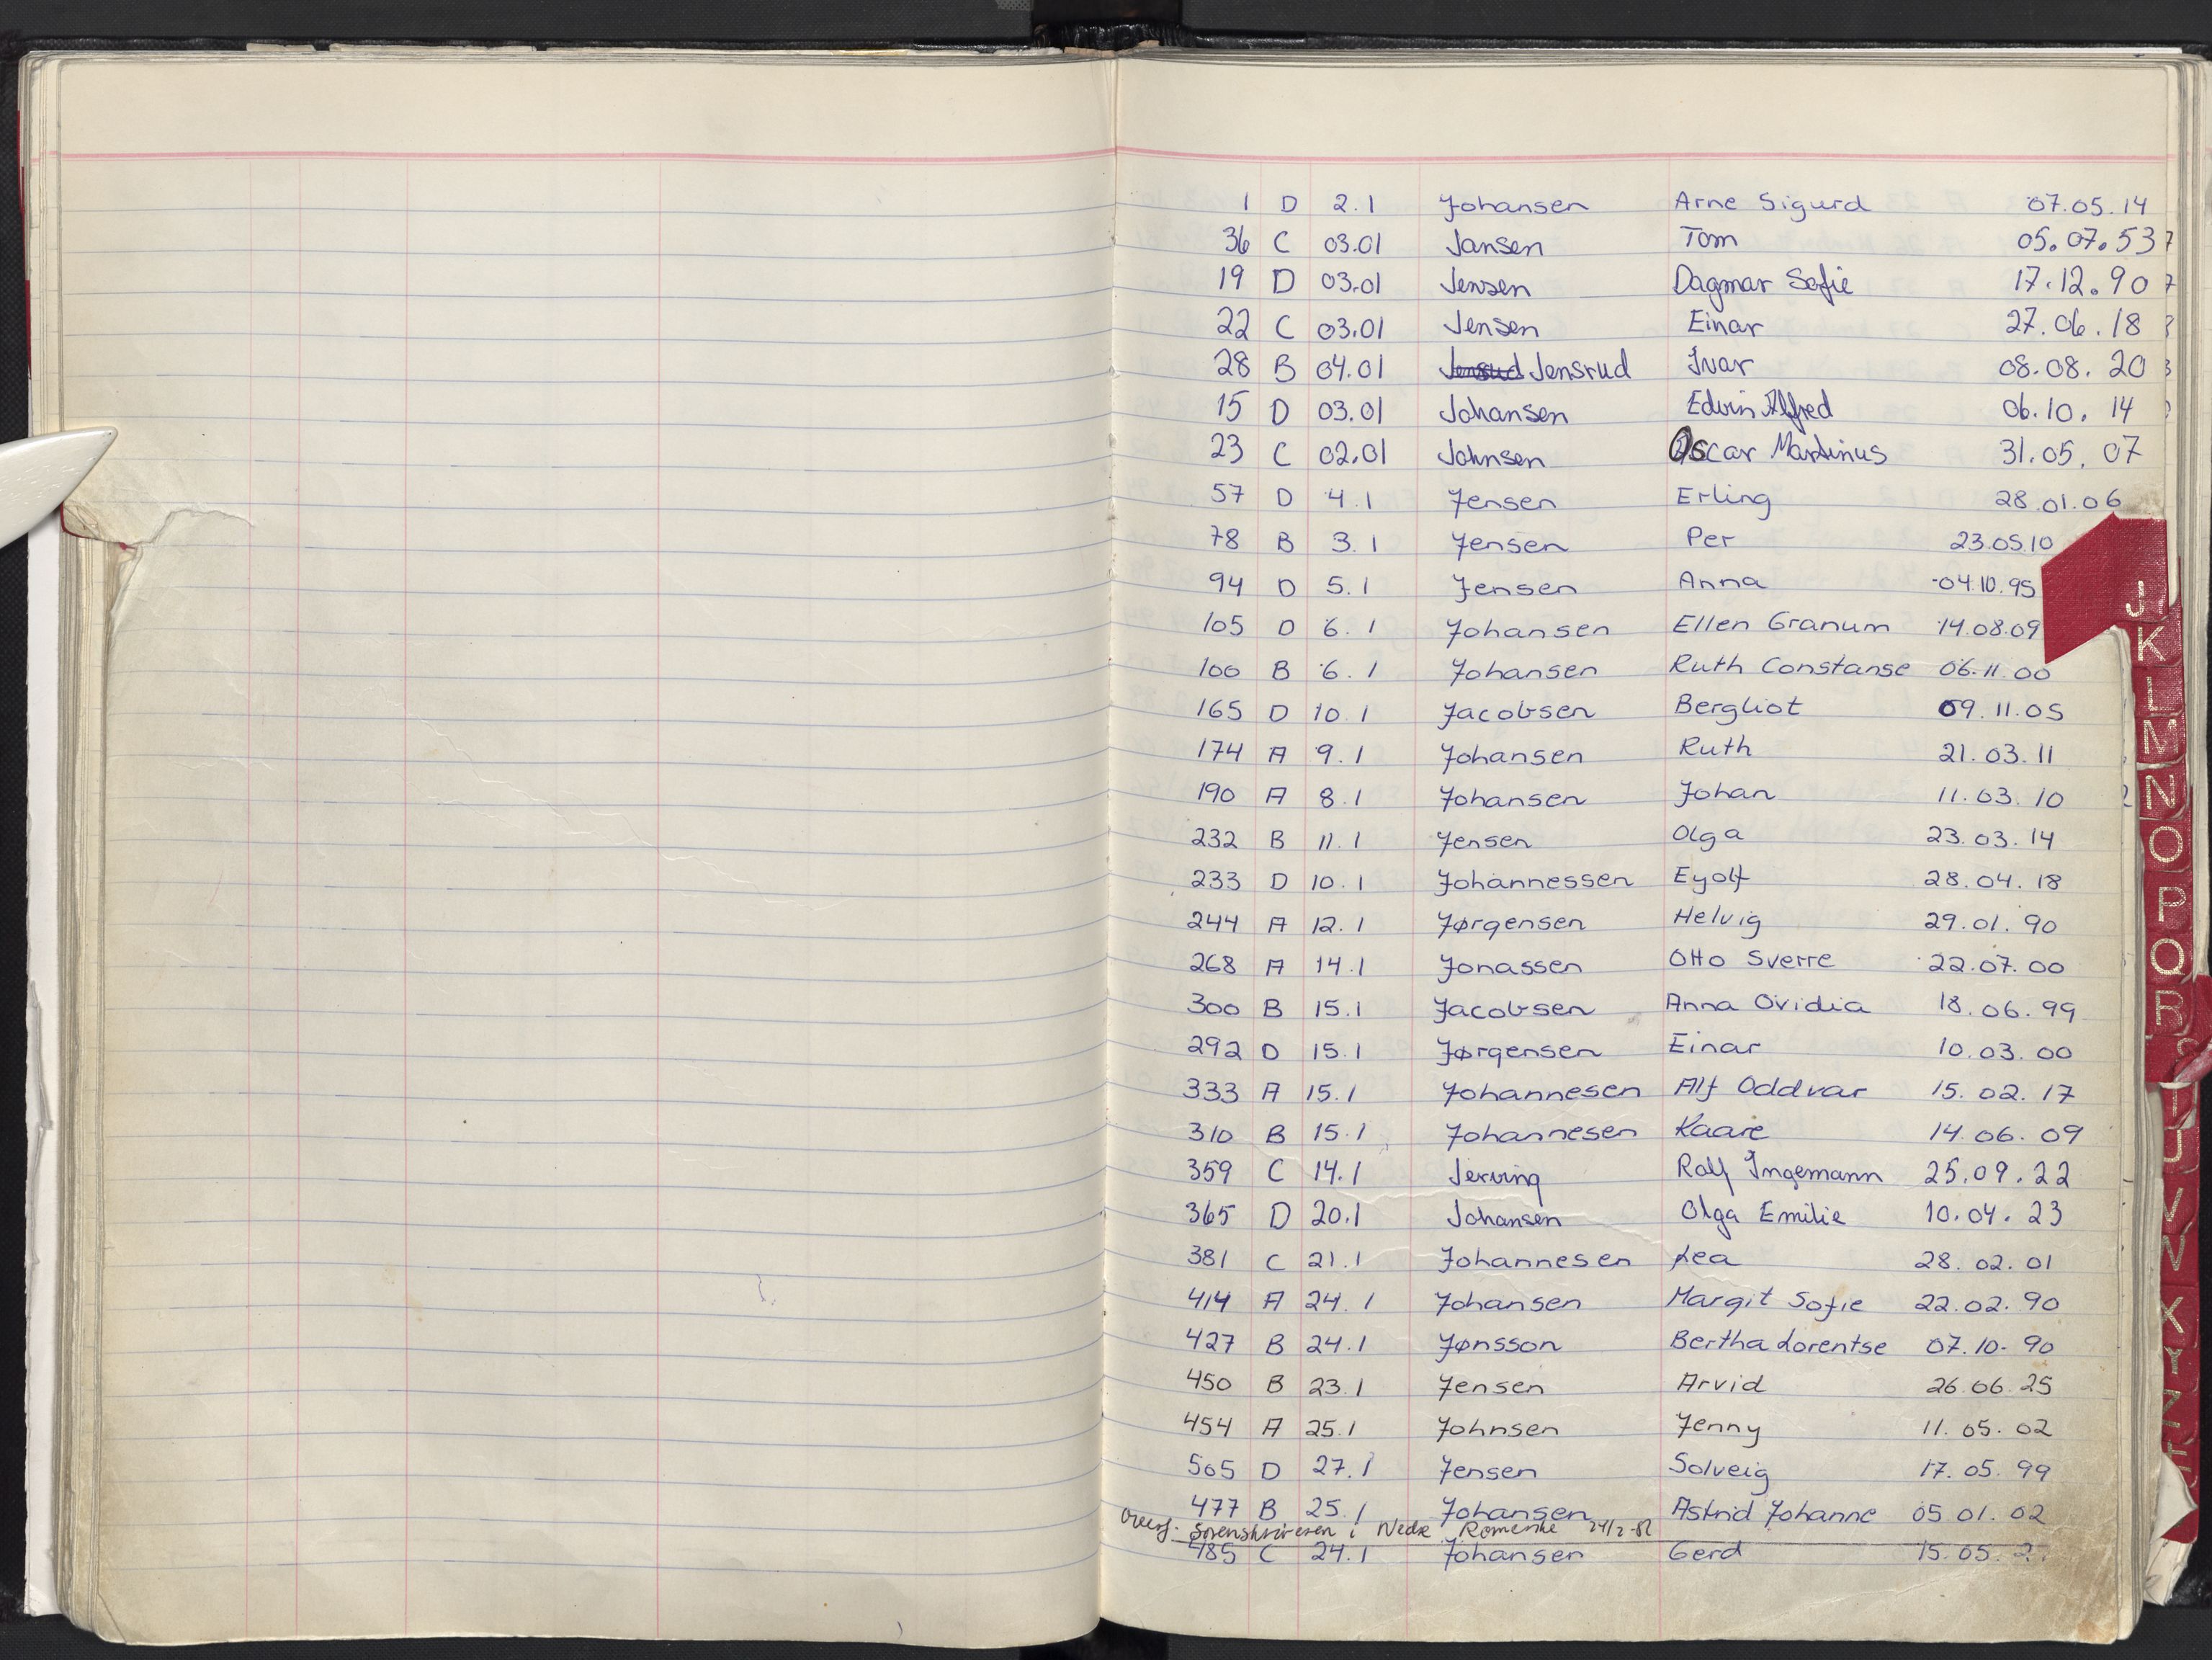 1 D 2.1 Johansen Arne Sigurd 07.05.14
36 C 03.01 Jansen Tom 05.07.53
19 D 03.01 Jensen Dagmar Sofie 17.12.90
22 C 03.01 Jensen Einar 27.06.18
28 B 04.01 Jensrud Ivar 08.08.20
15 D 03.01 Johansen Edvin Alfred 06.10.14
23 C 02.01 Johnsen Oscar Martinus 31.05.07
57 D 4.1 Jensen Erling 28.01.06
78 B 3.1 Jensen Per 23.05.10
94 D 5.1 Jensen Anna 04.10.95
105 D 6.1 Johansen Ellen Granum 14.08.09
100 B 6.1 Johansen Ruth Constanse 06.11.00
165 D 10.1 Jacobsen Bergliot 09.11.05
174 A 9.1 Johansen Ruth 21.03.11
190 A 8.1 Johansen Johan 11.03.10
232 B 11.1 Jensen Olga 23.03.14
233 D 10.1 Johannessen Eyolf 28.04.18
244 A 12.1 Jørgensen Helvig 29.01.90
268 A 14.1 Jonassen Otto Sverre 22.07.00
300 B 15.1 Jacobsen Anna Ovidia 18.06.99
292 D 15.1 Jørgensen Einar 10.03.00
333 A 15.1 Johannesen Alf Oddvar 15.02.17
310 B 15.1 Johannesen Kaare 14.06.09
359 C 14.1 Jerving Rolf Ingemann 25.09.22
365 D 20.1 Johansen Olga Emilie 10.04.23
381 C 21.1 Johannesen Lea 28.02.01
414 A 24.1 Johansen Margit Sofie 22.02.90
427 B 24.1 Jønsson Bertha Lorentse 07.10.90
450 B 23.1 Jensen Arvid 26.06.25
454 A 25.1 Johnsen Jenny 11.05.02
505 D 27.1 Jensen Solveig 17.05.99
477 B 25.1 Johansen Astrid Johanne 05.01.02
Overf. Sorenskriveren i Nedre Romerike 24/2-82
485 C 24.1 Johansen Gerd 15.05.
J
K
L
M
N
O
P
Q
R
T
U
V
X
Y
Z